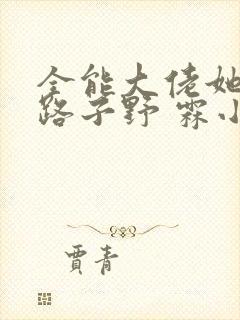 全能大佬她
路子野 霖小
賈青